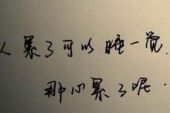 人累了可以睡一觉
那心累了呢.